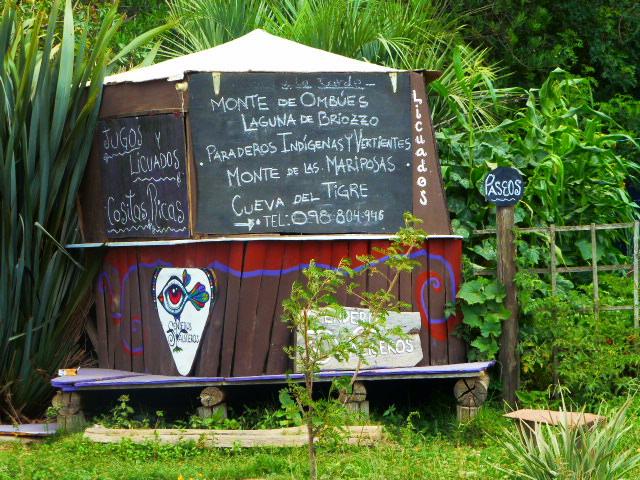 Jugos y
Licuados
Cositas Ricas
Monte de Ombúes
Laguna de Briozzo
Paraderos Indígenas y Vertientes
Monte de las Mariposas
Cueva del Tigre
Tel: 098-804-946
Licuados
Paseos
Senderos